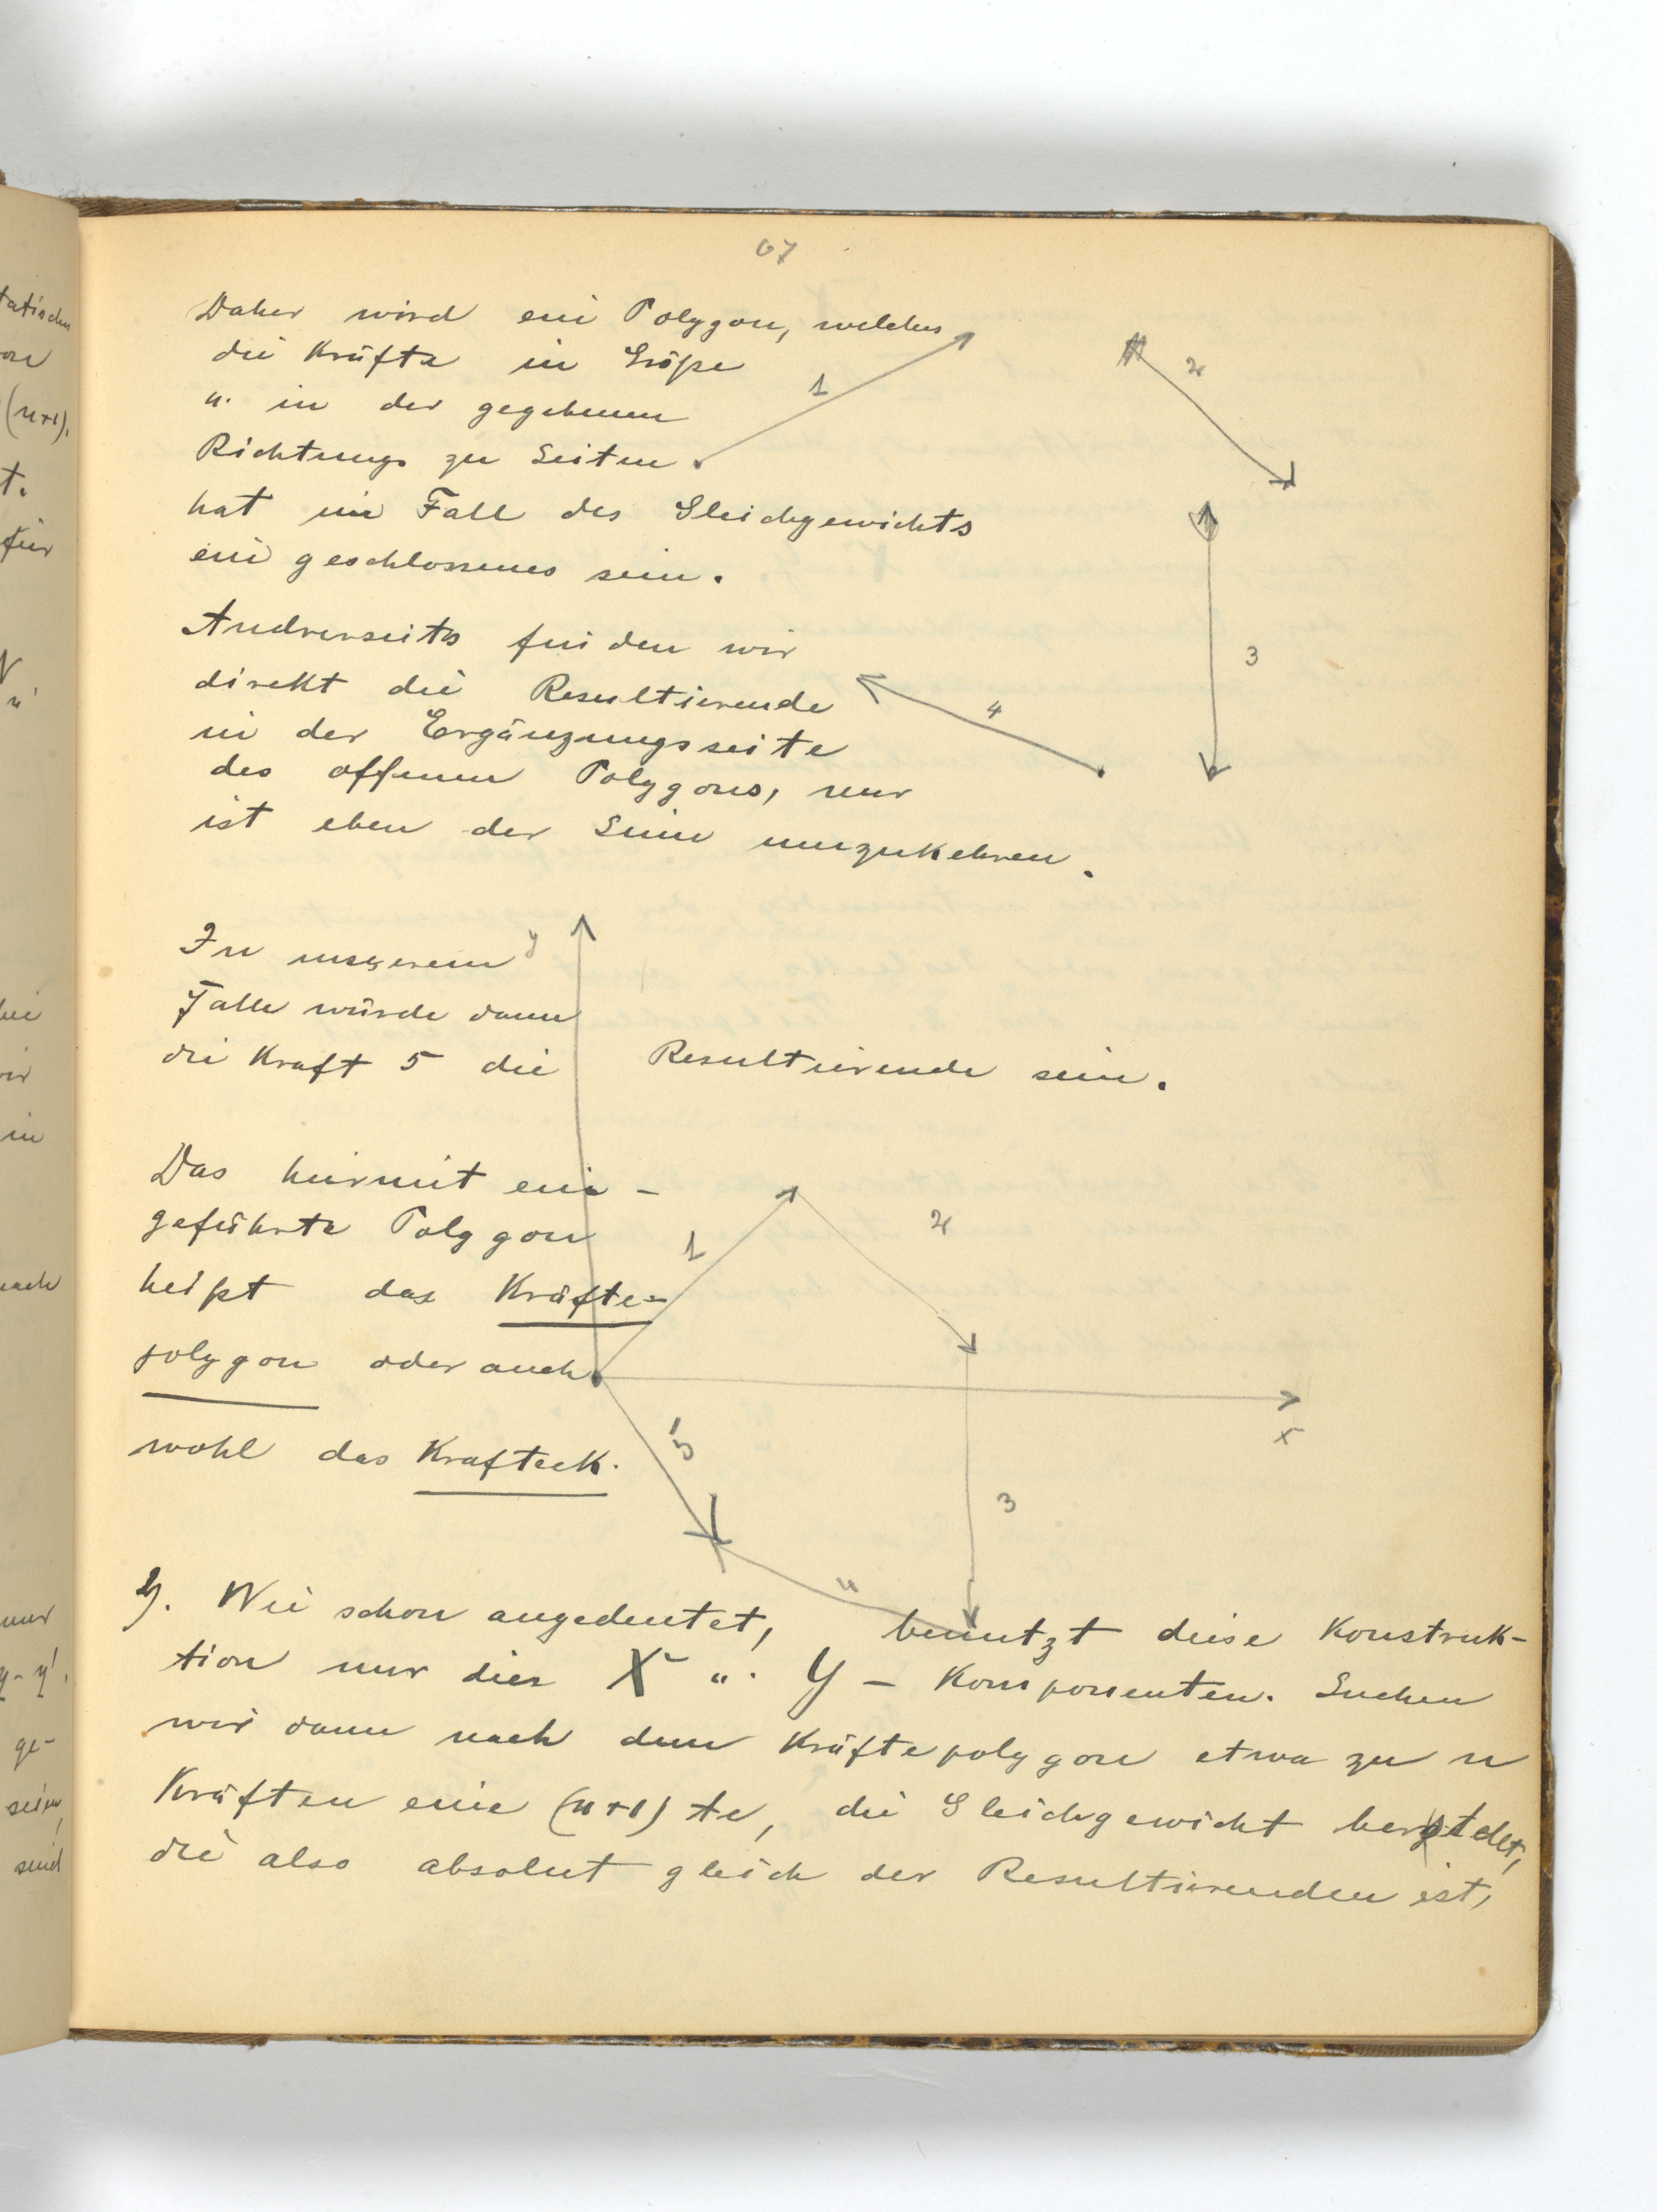 67
Daher wird ein Polygon, welches
die Kräfte in Größe
u. in der gegebenen
Richtung zu Seiten
hat im Fall des Gleichgewichts
ein geschlossenes sein.
Andrerseits finden wir
direkt die Resultierende
in der Ergänzungsseite
des offenen Polygons, nur
ist eben der Sinn umzukehren.
1
2
3
4
In unserem
Falle würde dann
die Kraft 5 die Resultierende sein.
y
Das hiermit ein-
geführte Polygon
heißt das Kräfte-
polygon oder auch
wohl das Krafteck.
1
2
x
5
3
4
2). Wie schon angedeutet, benutzt diese Konstruk-
tion nur die X u. Y - Komponenten. Suchen
wir dann nach dem Kräftepolygon etwa zu n
Kräften eine (n+1)te, die Gleichgewicht herstellt,
die also absolut gleich der Resultierenden ist,
tatischen
(n+1).
t.
für
in
nur
y-y'.
ge-
sein,
sind